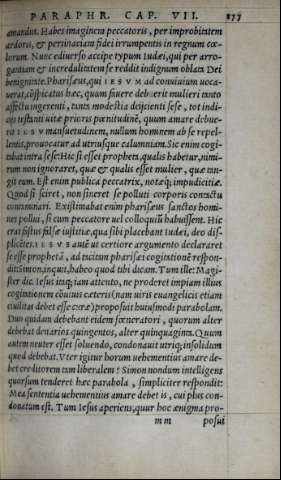 PARAPHR. CAP. VII. 277
amandus. Habes imaginem peccatoris, per improbitatem
ardoris, & pertinaciam fidei irrumpentis in regnum cœ-
lorum. Nunc ediuerso accipe typum Iudæi, qui per arro-
gantiam & incredulitatem se reddit indignum oblata Dei
benignitate. Pharisæus, qui IESVM ad conuiuium uoca-
uerat, cōspicatus hæc, quum fauere debuerit mulieri tanto
affectu ingerenti, tanta modestia deijcienti sese, tot indi-
cijs testanti uitæ prioris pœnitudinē, quum amare debue-
rit IESV mansuetudinem, nullum hominem ab se repel-
lentis, prouocatur ad utriusque calumniam. Sic enim cogi-
tabat intra se se: Hic si esset propheta, qualis habetur, nimi-
rum non ignoraret, quæ & qualis esset mulier, quæ tan-
git eum. Est enim publica peccatrix, notæq; impudicitiæ.
Quod si sciret, non sineret se pollui corporis contactu
contaminari. Existimabat enim pharisæus sanctos homi-
nes pollui, si cum peccatore uel colloquiū habuissent. Hic
erat fastus falsæ iustitiæ, qua sibi placebant Iudæi, deo dis-
plicēter. IESVS autē ut certiore argumento declararet
se esse prophetā, ad tacitam pharisæi cogitationē respon-
dit: Simon, inquit, habeo quod tibi dicam. Tum ille: Magi-
ster dic. Iesus itaq; tam attento, ne proderet impiam illius
cogitationem cōuiuis cæteris (nam uiris euangelicis etiam
ciuilitas debet esse curæ) proposuit huiusmodi parabolam.
Duo quidam debebant eidem fœneratori, quorum alter
debebat denarios quingentos, alter quinquaginta. Quum
autem neuter esset soluendo, condonauit utriq; insolidum
quod debebat. Vter igitur horum uehementius amare de-
bet creditorem tam liberalem? Simon nondum intelligens
quorsum tenderet hæc parabola, simpliciter respondit:
Mea sententia uehementius amare debet is, cui plus con-
donatum est. Tum Iesus aperiens, quur hoc ænigma pro-
mm posui